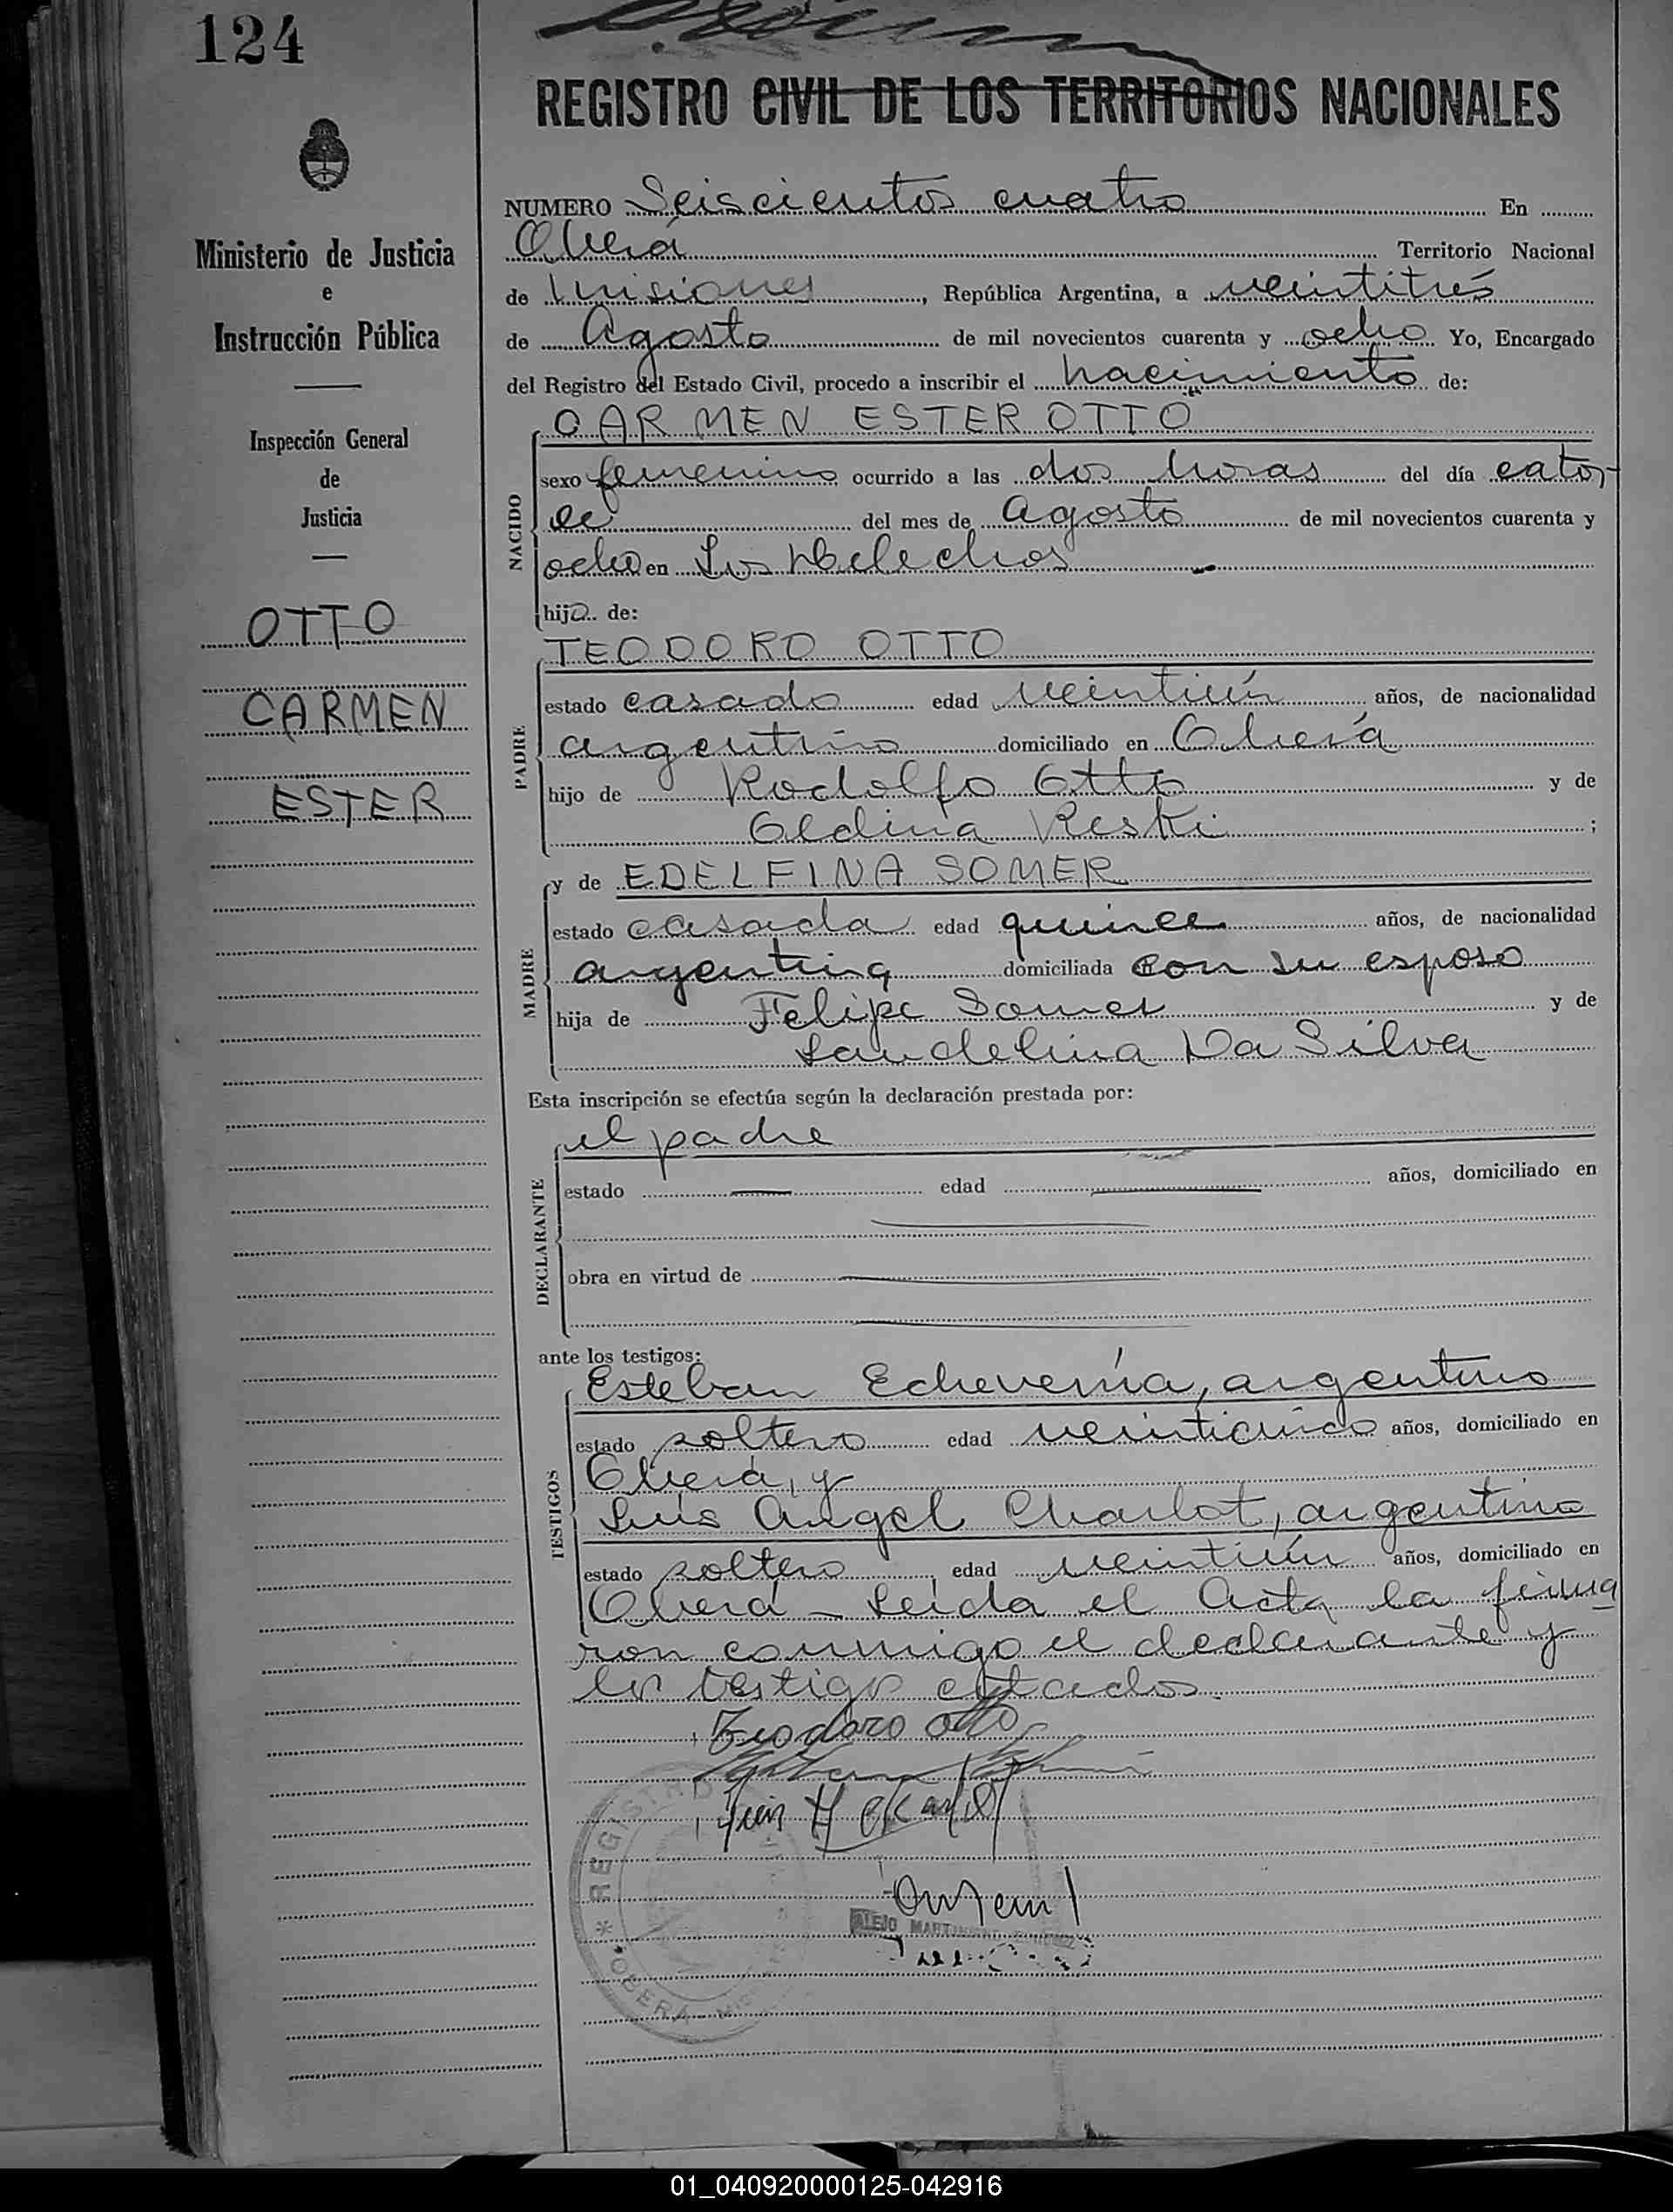 124
REGISTRO CIVIL DE LOS TERRITORIOS NACIONALES
Ministerio de Justicia
e
Instrucción Pública
Inspección General
de
Justicia
OTTO
CARMEN
ESTER
NUMERO Seiscientos cuatro En
Oberá Territorio Nacional
de Misiones, República Argentina, a veintitrés
de Agosto de mil novecientos cuarenta y ocho Yo, Encargado
del Registro del Estado Civil, procedo a inscribir el nacimiento de:
NACIDO
CARMEN ESTER OTTO
sexo femenino ocurrido a las dos horas del día cator-
ce del mes de Agosto de mil novecientos cuarenta y
ocho en Los Helechos
hija de:
PADRE
TEODORO OTTO
estado casado edad veintiún años, de nacionalidad
argentino domiciliado en Oberá
hijo de Rodolfo Otto y de
Oldina Reski ;
MADRE
y de EDELFINA SOMER
estado casada edad quince años, de nacionalidad
argentina domiciliada con su esposo
hija de Felipe Somer y de
Laudelina Da Silva
Esta inscripción se efectúa según la declaración prestada por:
DECLARANTE
el padre
estado edad años, domiciliado en
obra en virtud de
ante los testigos:
TESTIGOS
Esteban Echeverría, argentino
estado soltero edad veinticinco años, domiciliado en
Oberá, y
Luis Angel Charlot, argentino
estado soltero, edad veintiún años, domiciliado en
Oberá - Leida el Acta la firma
ron conmigo el declarante y
los testigos citados.
Teodoro Otto
REGISTRO
OBERA
ALEJO
01_040920000125-042916